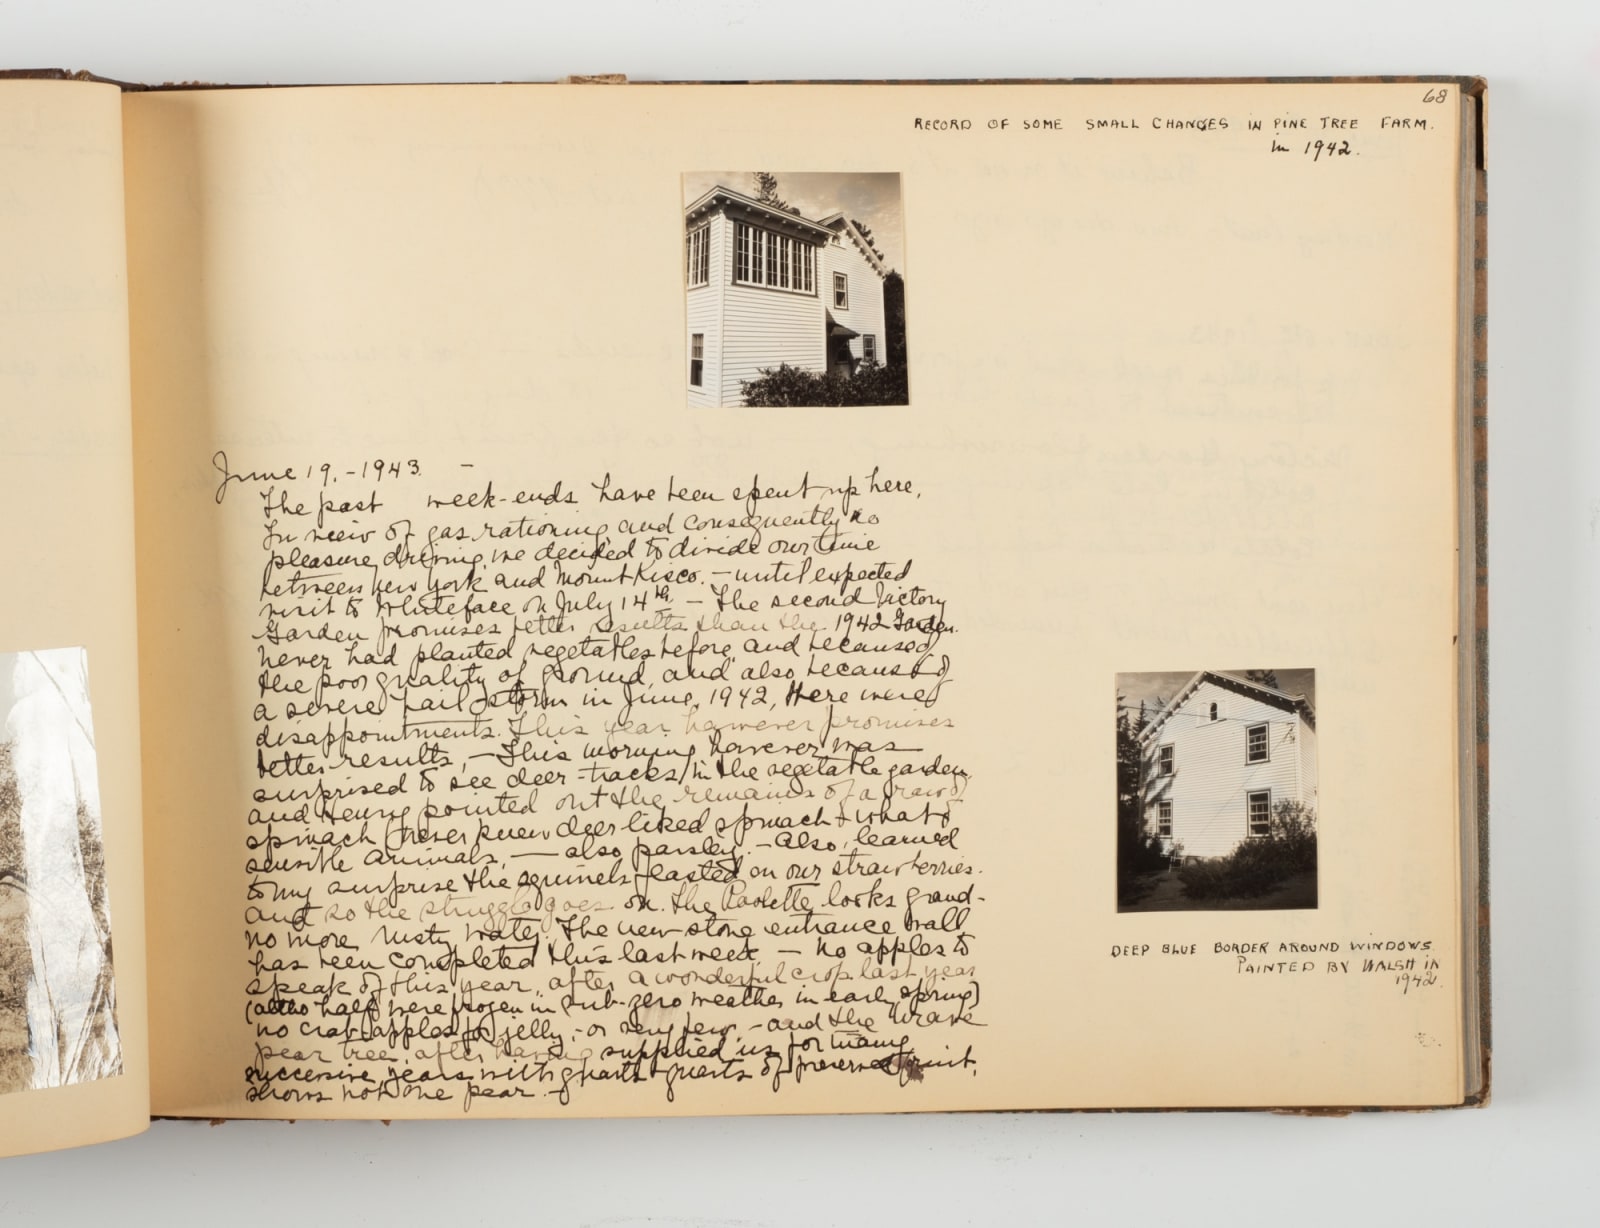 68
RECORD OF SOME SMALL CHANGES IN PINE TREE FARM.
in 1942.
June 19, - 1943. -
The past week-ends have been spent up here,
In view of gas rationing and consequently no
pleasure driving, we decided to divide our time
between New York and Mount Kisco. - until expected
visit to Whiteface on July 14th. - The second Victory
Garden promises better results than the 1942 Garden.
Never had planted vegetables before, and because of
the poor quality of ground, and also because of
a severe hail-storm in June, 1942, there were
disappointments. This year however promises
better results, - This morning however was
surprised to see deer-tracks in the vegetable garden,
and Henry pointed out the remains of a row of
spinach (Never knew deer liked spinach - what
sensible animals, - also parsley. - Also, learned
to my surprise the squirrels feasted on our strawberries.
and so the struggle goes on. The Paolette looks grand-
no more rusty water. The new stone entrance wall
has been completed this last week. - No apples to
speak of this year, after a wonderful crop last year
(altho half were frozen in sub-zero weather in early spring)
no crab-apples for jelly, - or very few, - and the brave
pear tree, after having supplied us for many
successive years with quarts & quarts of preserved fruit,
shows not one pear. -
DEEP BLUE BORDER AROUND WINDOWS.
PAINTED BY WALSH IN
1942.